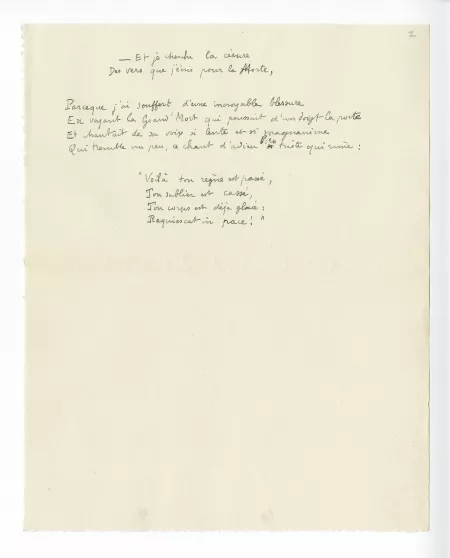 2
— Et je cherche la césure
Des vers que j'écris pour la Morte,
Parceque j'ai souffert d'une incroyable blessure
En voyant la Grand' Mort qui poussait d'un doigt la porte
Et chantait de sa voix si lente et si magnanime
Qui tremble un peu, ce chant d'adieu triste qui rime :
"Voilà ton règne est passé,
Ton sablier est cassé,
Ton corps est déjà glacé :
Requiescat in pace ! "